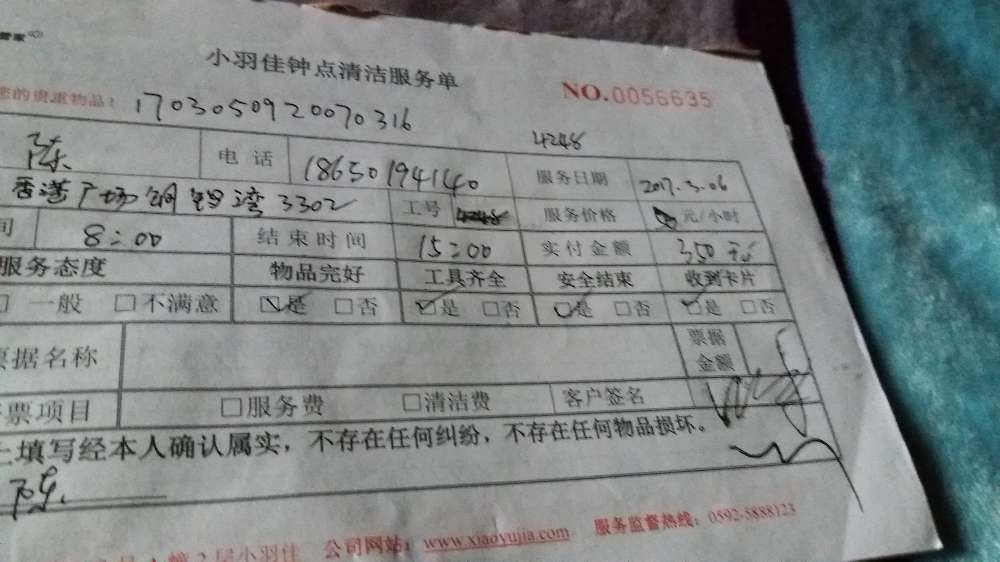 管家
小羽佳钟点清洁服务单
NO.0056635
您的贵重物品！ 1703050920070316
4248
陈 电话 18650194140 服务日期 2017.3.06
香港广场铜锣湾3302 工号 4248 服务价格 50 元/小时
间 8:00 结束时间 15:00 实付金额 350元
服务态度 物品完好 工具齐全 安全结束 收到卡片
□一般 □不满意 ☑是 □否 ☑是 □否 ☑是 □否 ☑是 □否
票据名称 票据金额
开票项目 □服务费 □清洁费 客户签名
上填写经本人确认属实，不存在任何纠纷，不存在任何物品损坏。
陈
幢2层小羽佳 公司网站：www.xiaoyujia.com 服务监督热线：0592-5888123